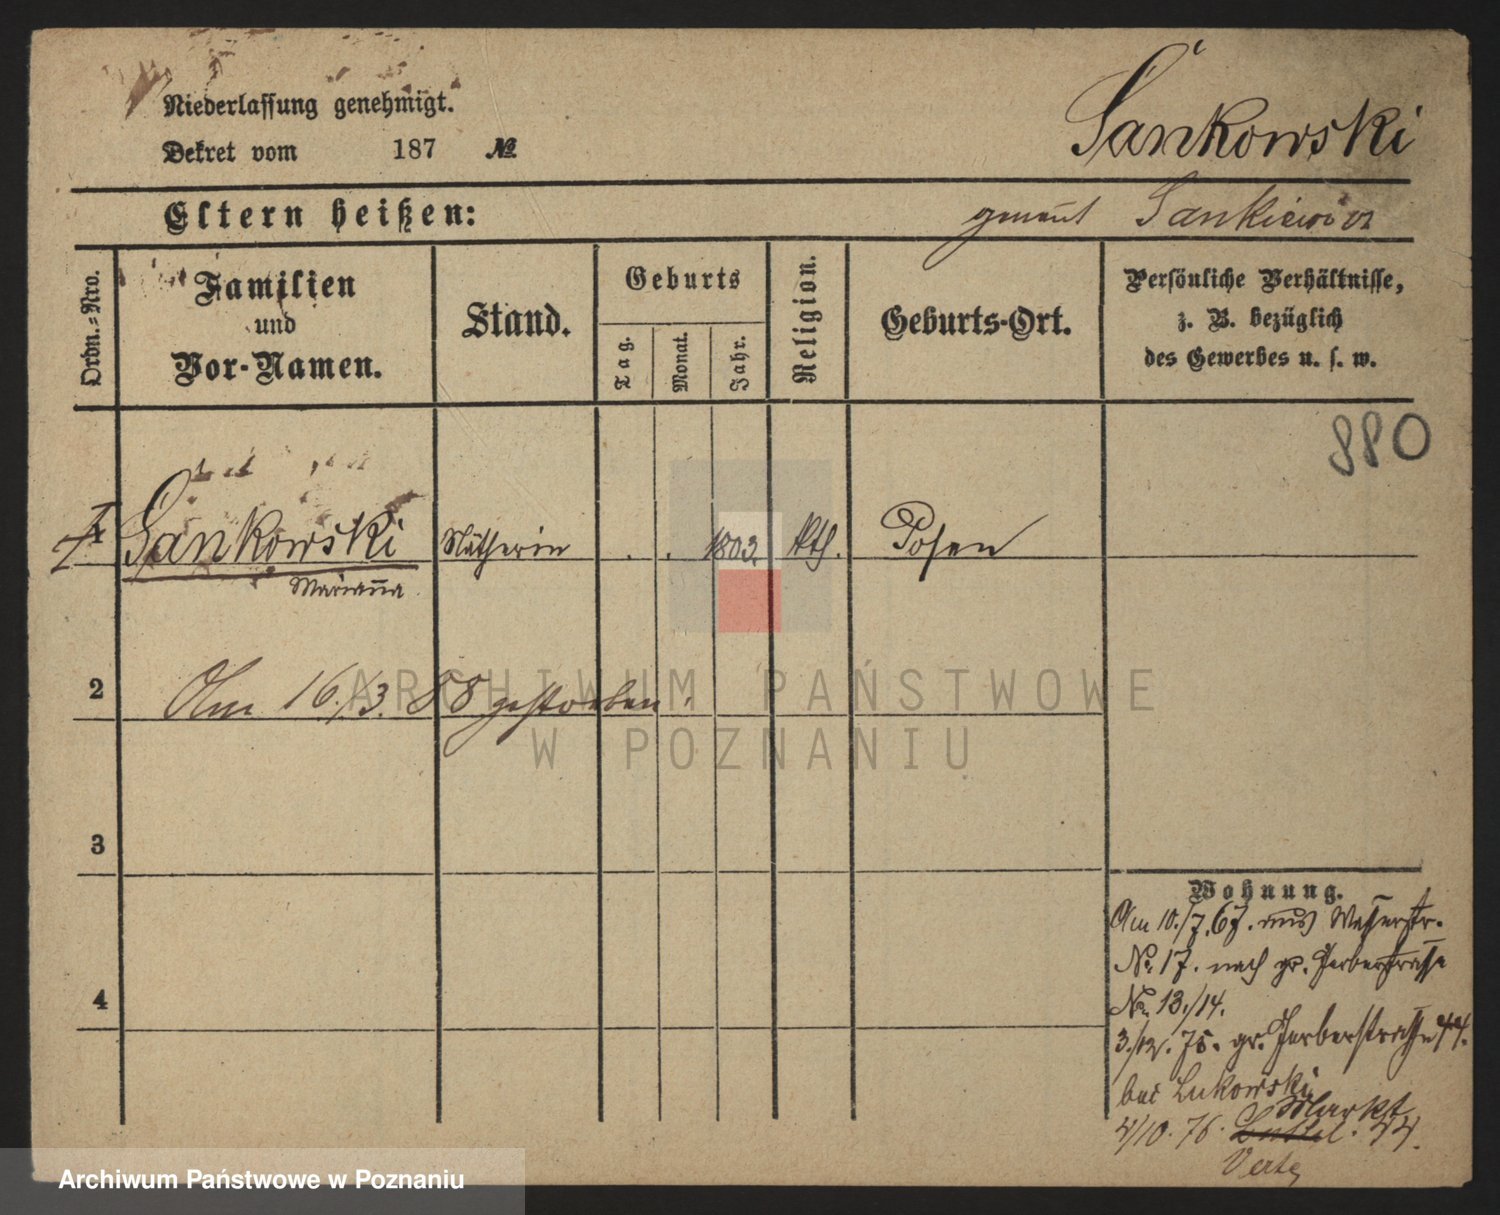 Niederlassung genehmigt.
Sankowski
Dekret vom 187 №
Eltern heißen:
genannt Sankiewicz
Ordn.-Nro.
Familien
und
Vor-Namen.
Stand.
Geburts
Tag.
Monat.
Jahr.
Religion.
Geburts-Ort.
Persönliche Verhältnisse,
z. B. bezüglich
des Gewerbes u. s. w.
880
1 Sankowski Nätherin . . 1803. kth. Posen
Marianna
2 Am 16./3. 88 gestorben.
3
4
Wohnung.
Am 10./7. 67. aus Wasserstr.
No. 17. nach gr. Gerberstrasse
No. 13./14.
3./12. 75. gr. Gerberstrasse 44.
bei Lukowski
Markt
4/10. 76. 44.
Verte
ARCHIWUM PAŃSTWOWE
W POZNANIU
Archiwum Państwowe w Poznaniu